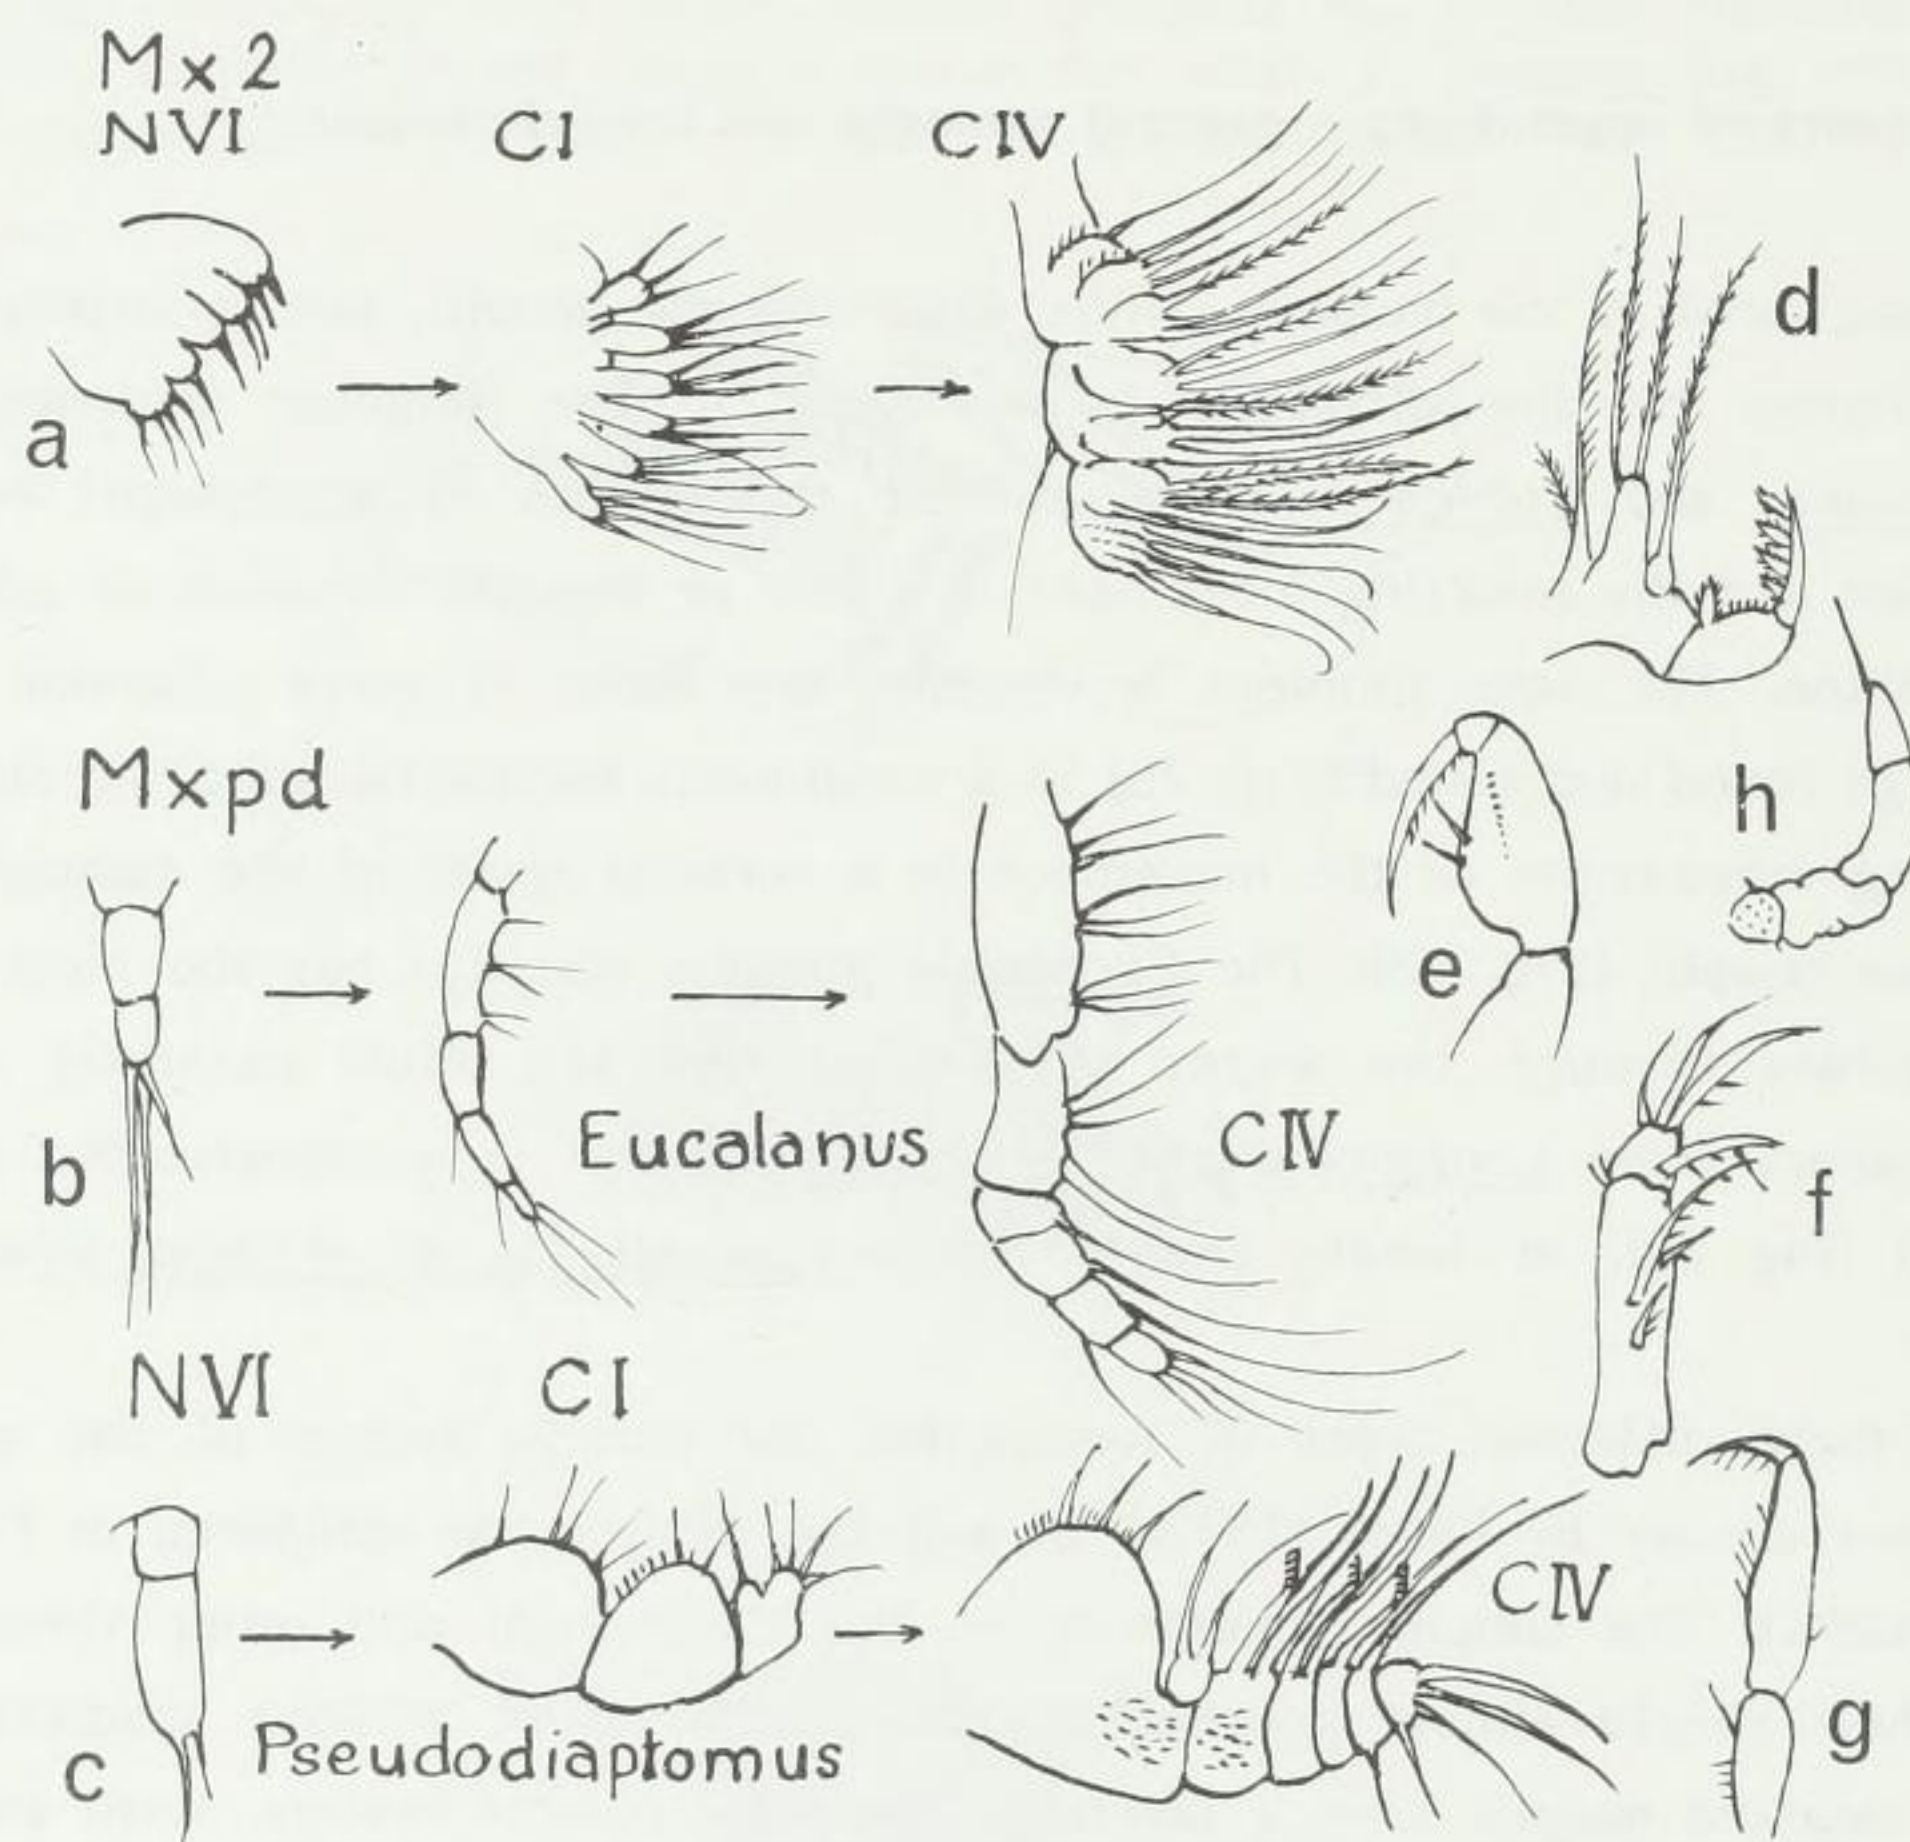 Mx2
NVI
CI
CIV
a
d
Mxpd
h
e
b
Eucalanus
CIV
f
NVI
CI
CIV
c
Pseudodiaptomus
g